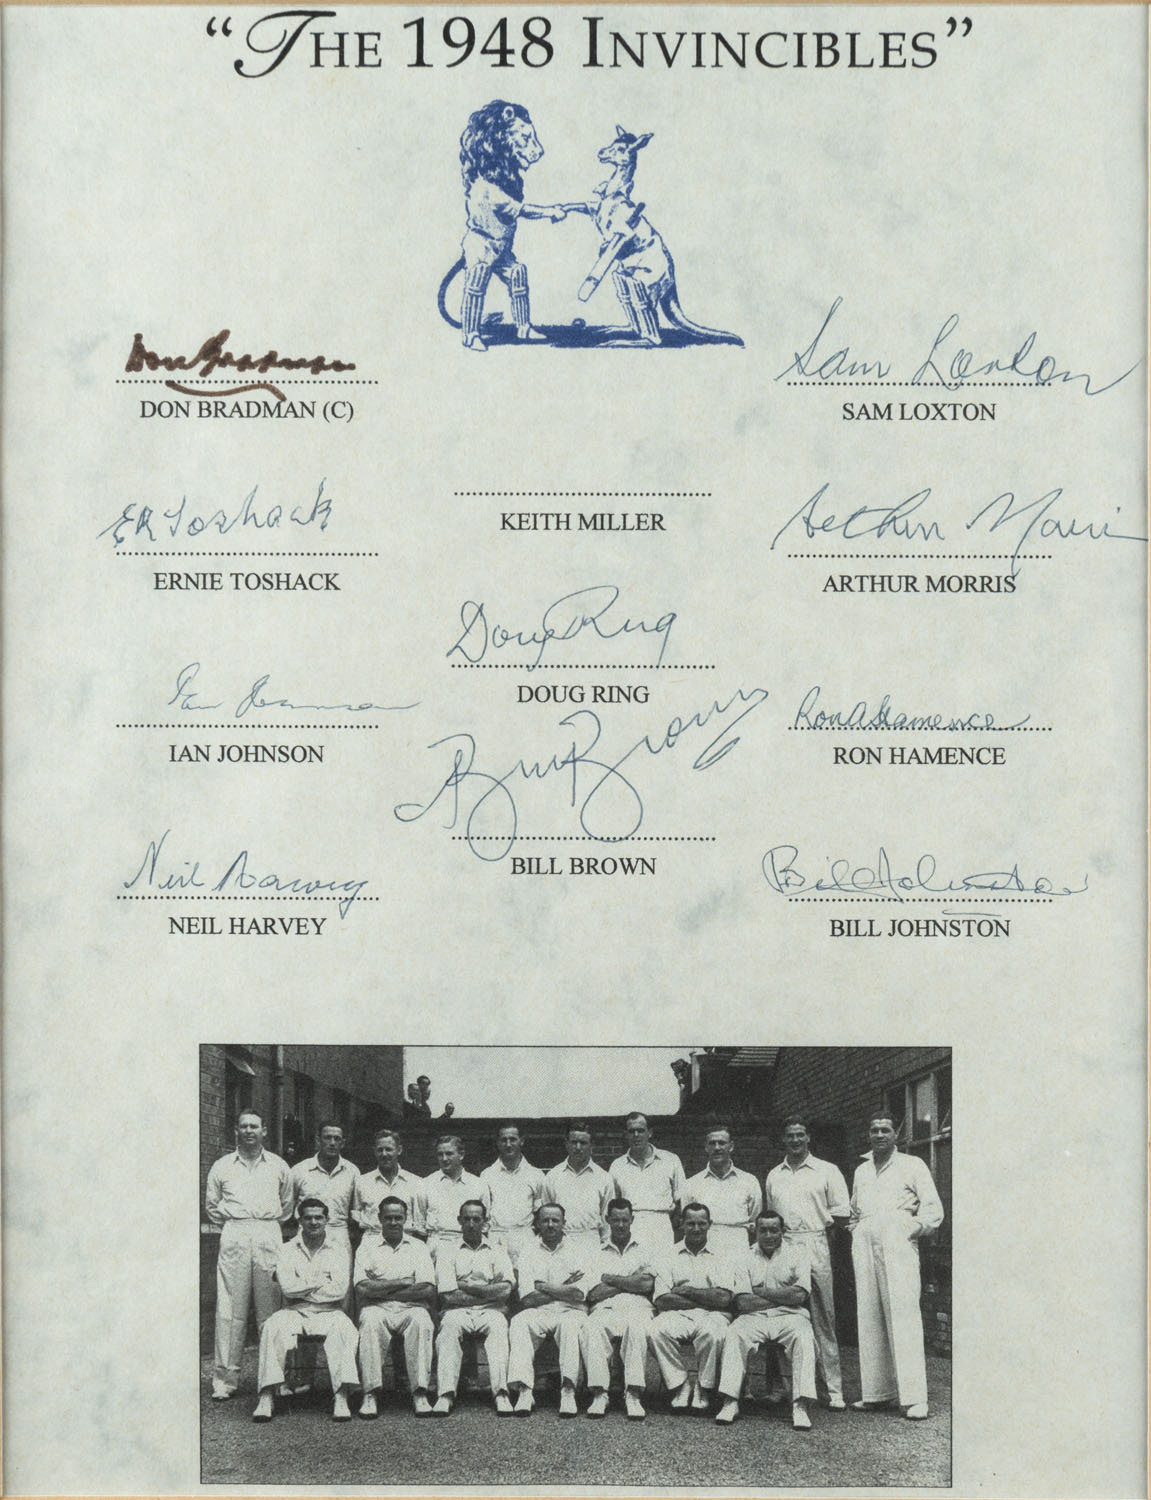 "THE 1948 INVINCIBLES"
Don Bradman
DON BRADMAN (C)
Sam Loxton
SAM LOXTON
ER Toshack
ERNIE TOSHACK
KEITH MILLER
Arthur Morris
ARTHUR MORRIS
Doug Ring
DOUG RING
Ian Johnson
IAN JOHNSON
Ron A Hamence
RON HAMENCE
Bill Brown
BILL BROWN
Neil Harvey
NEIL HARVEY
Bill Johnston
BILL JOHNSTON